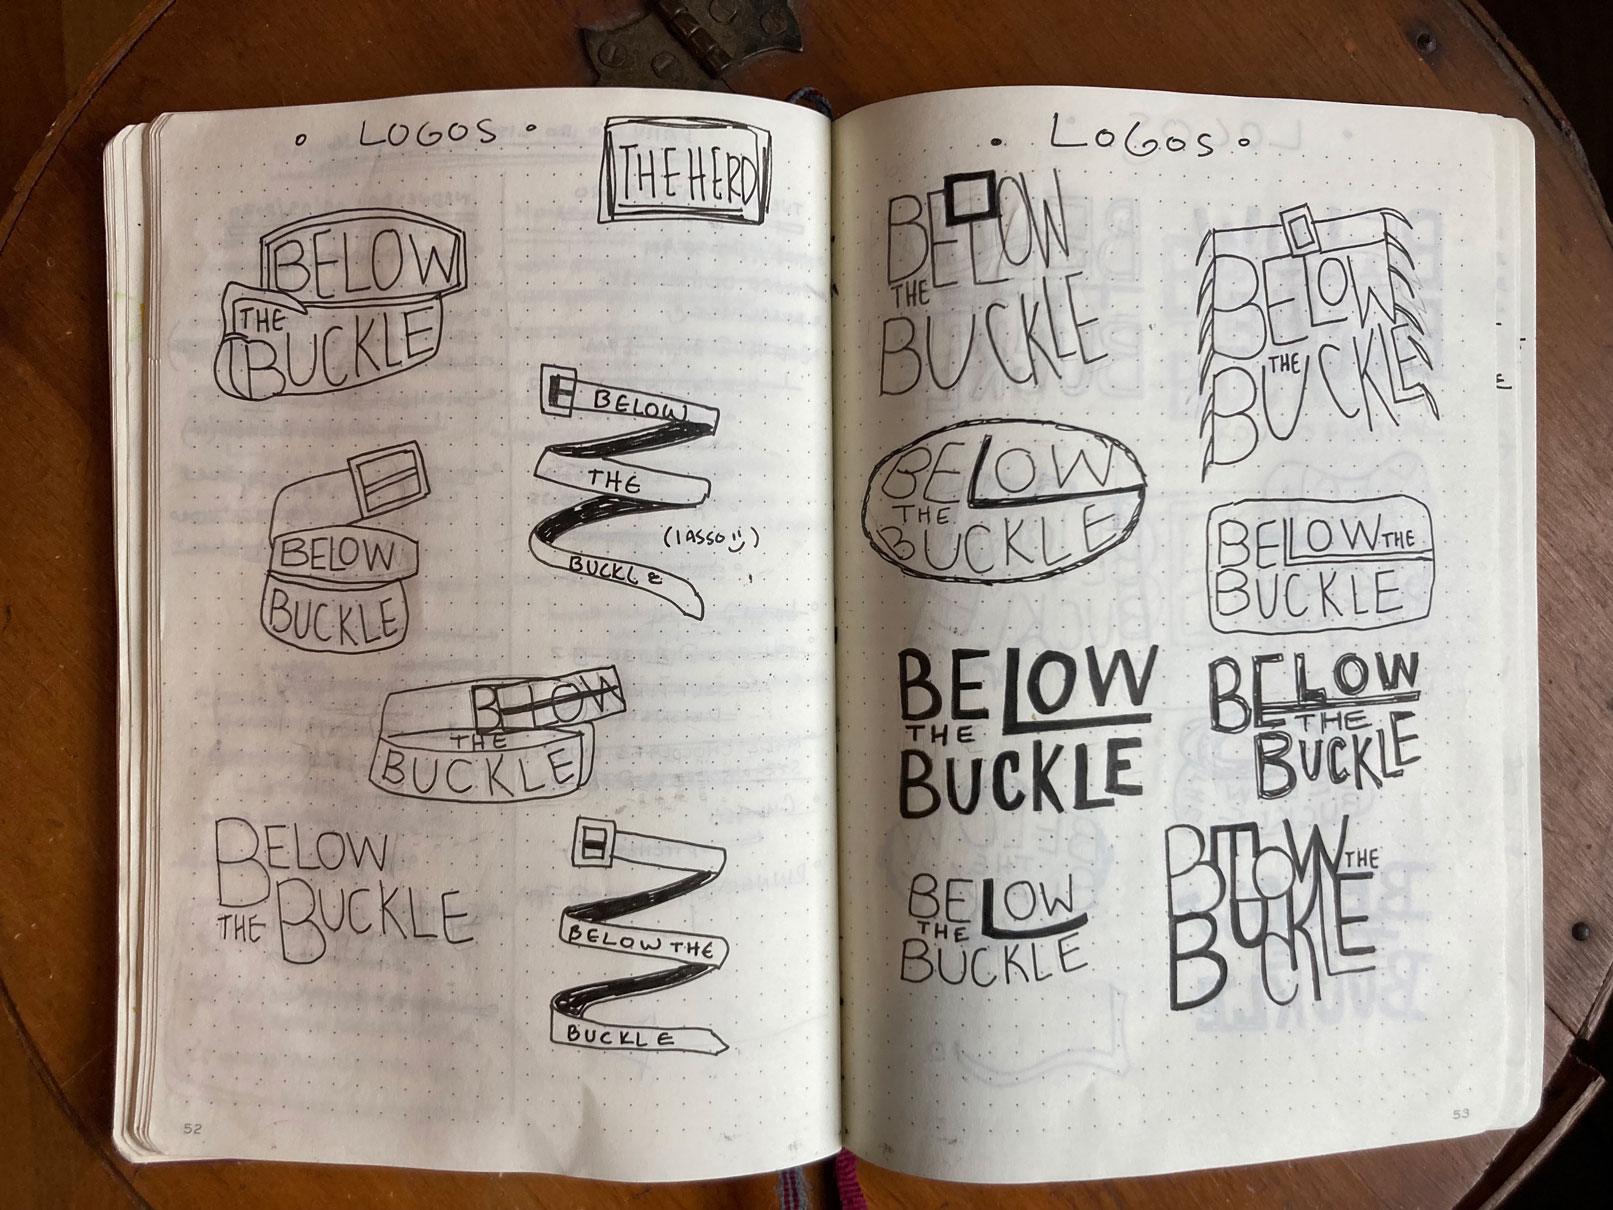 LOGOS
THE HERD
BELOW
THE
BUCKLE
BELOW
THE
(lASSO)
BUCKLE
BELOW
BUCKLE
BELOW
THE
BUCKLE
BELOW
THE BUCKLE
BELOW THE
BUCKLE
52
LOGOS
BELOW
THE
BUCKLE
BELOW
THE
BUCKLE
BELOW
THE
BUCKLE
BELLOW THE
BUCKLE
BELOW
THE
BUCKLE
BELOW
THE
BUCKLE
BELOW
THE
BUCKLE
THE
BUCKLE
53